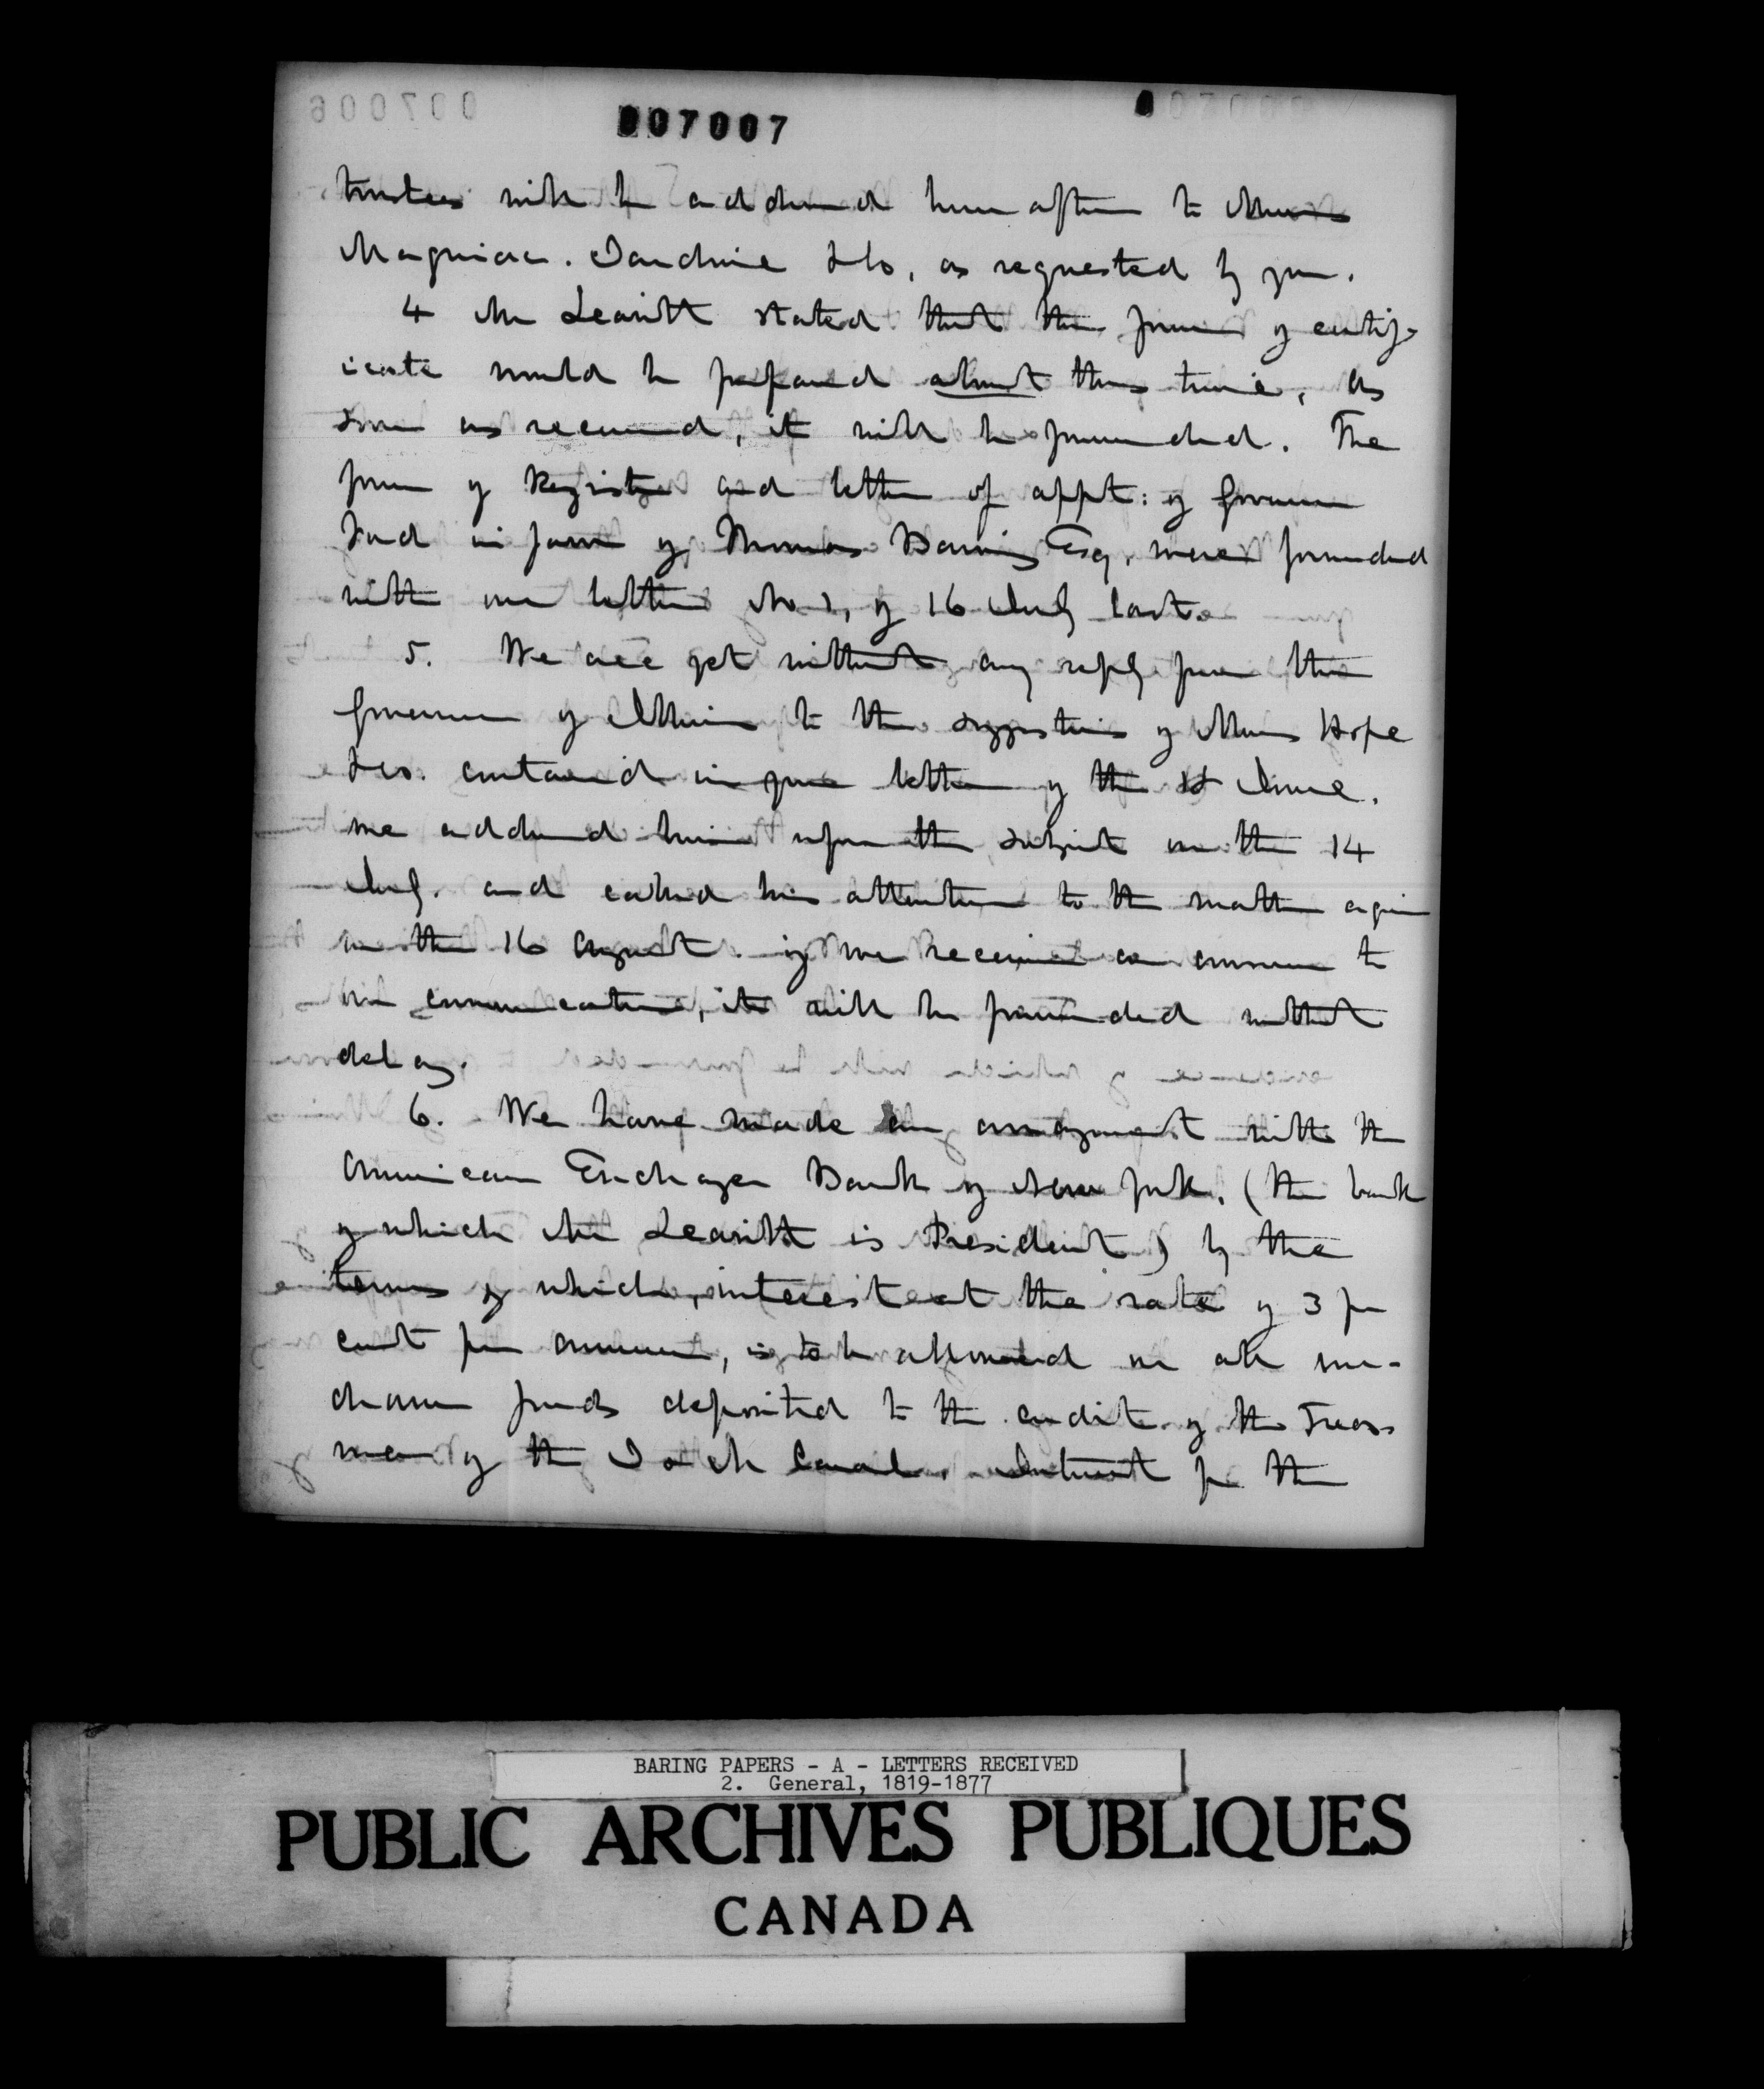 007007
trustees will be addressed hereafter to Messrs
Magniac. Jardine &Co, as requested by you.
4 Mr Leavitt stated that the form of certif-
icate would be prepared about this time, As
soon as received, it will be forwarded. The
form of Register and letter of appt: of Governor
Ford in favor of Thomas Baring Esq. were forwarded
with our letter No 1, of 16 July last.
5. We are yet without any reply from the
Governor of Illinois to the suggestions of Messrs Hope
&Co. contained in your letter of the June.
we addressed him upon the subject on the 14
July. and called his attention to the matter again
on the 16 August. if we receive an answer to
our communication, it will be forwarded without
delay.
6. We have made an arrangement with the
American Exchange Bank of New York, (the bank
of which Mr Leavitt is President) by the
terms of which, interest at the rate of 3 per
cent per annum, is to be allowed on all un-
drawn funds deposited to the credit of the Treas
urer of the I & M Canal. Interest for the
BARING PAPERS - A - LETTERS RECEIVED
2. General, 1819-1877
PUBLIC ARCHIVES PUBLIQUES
CANADA